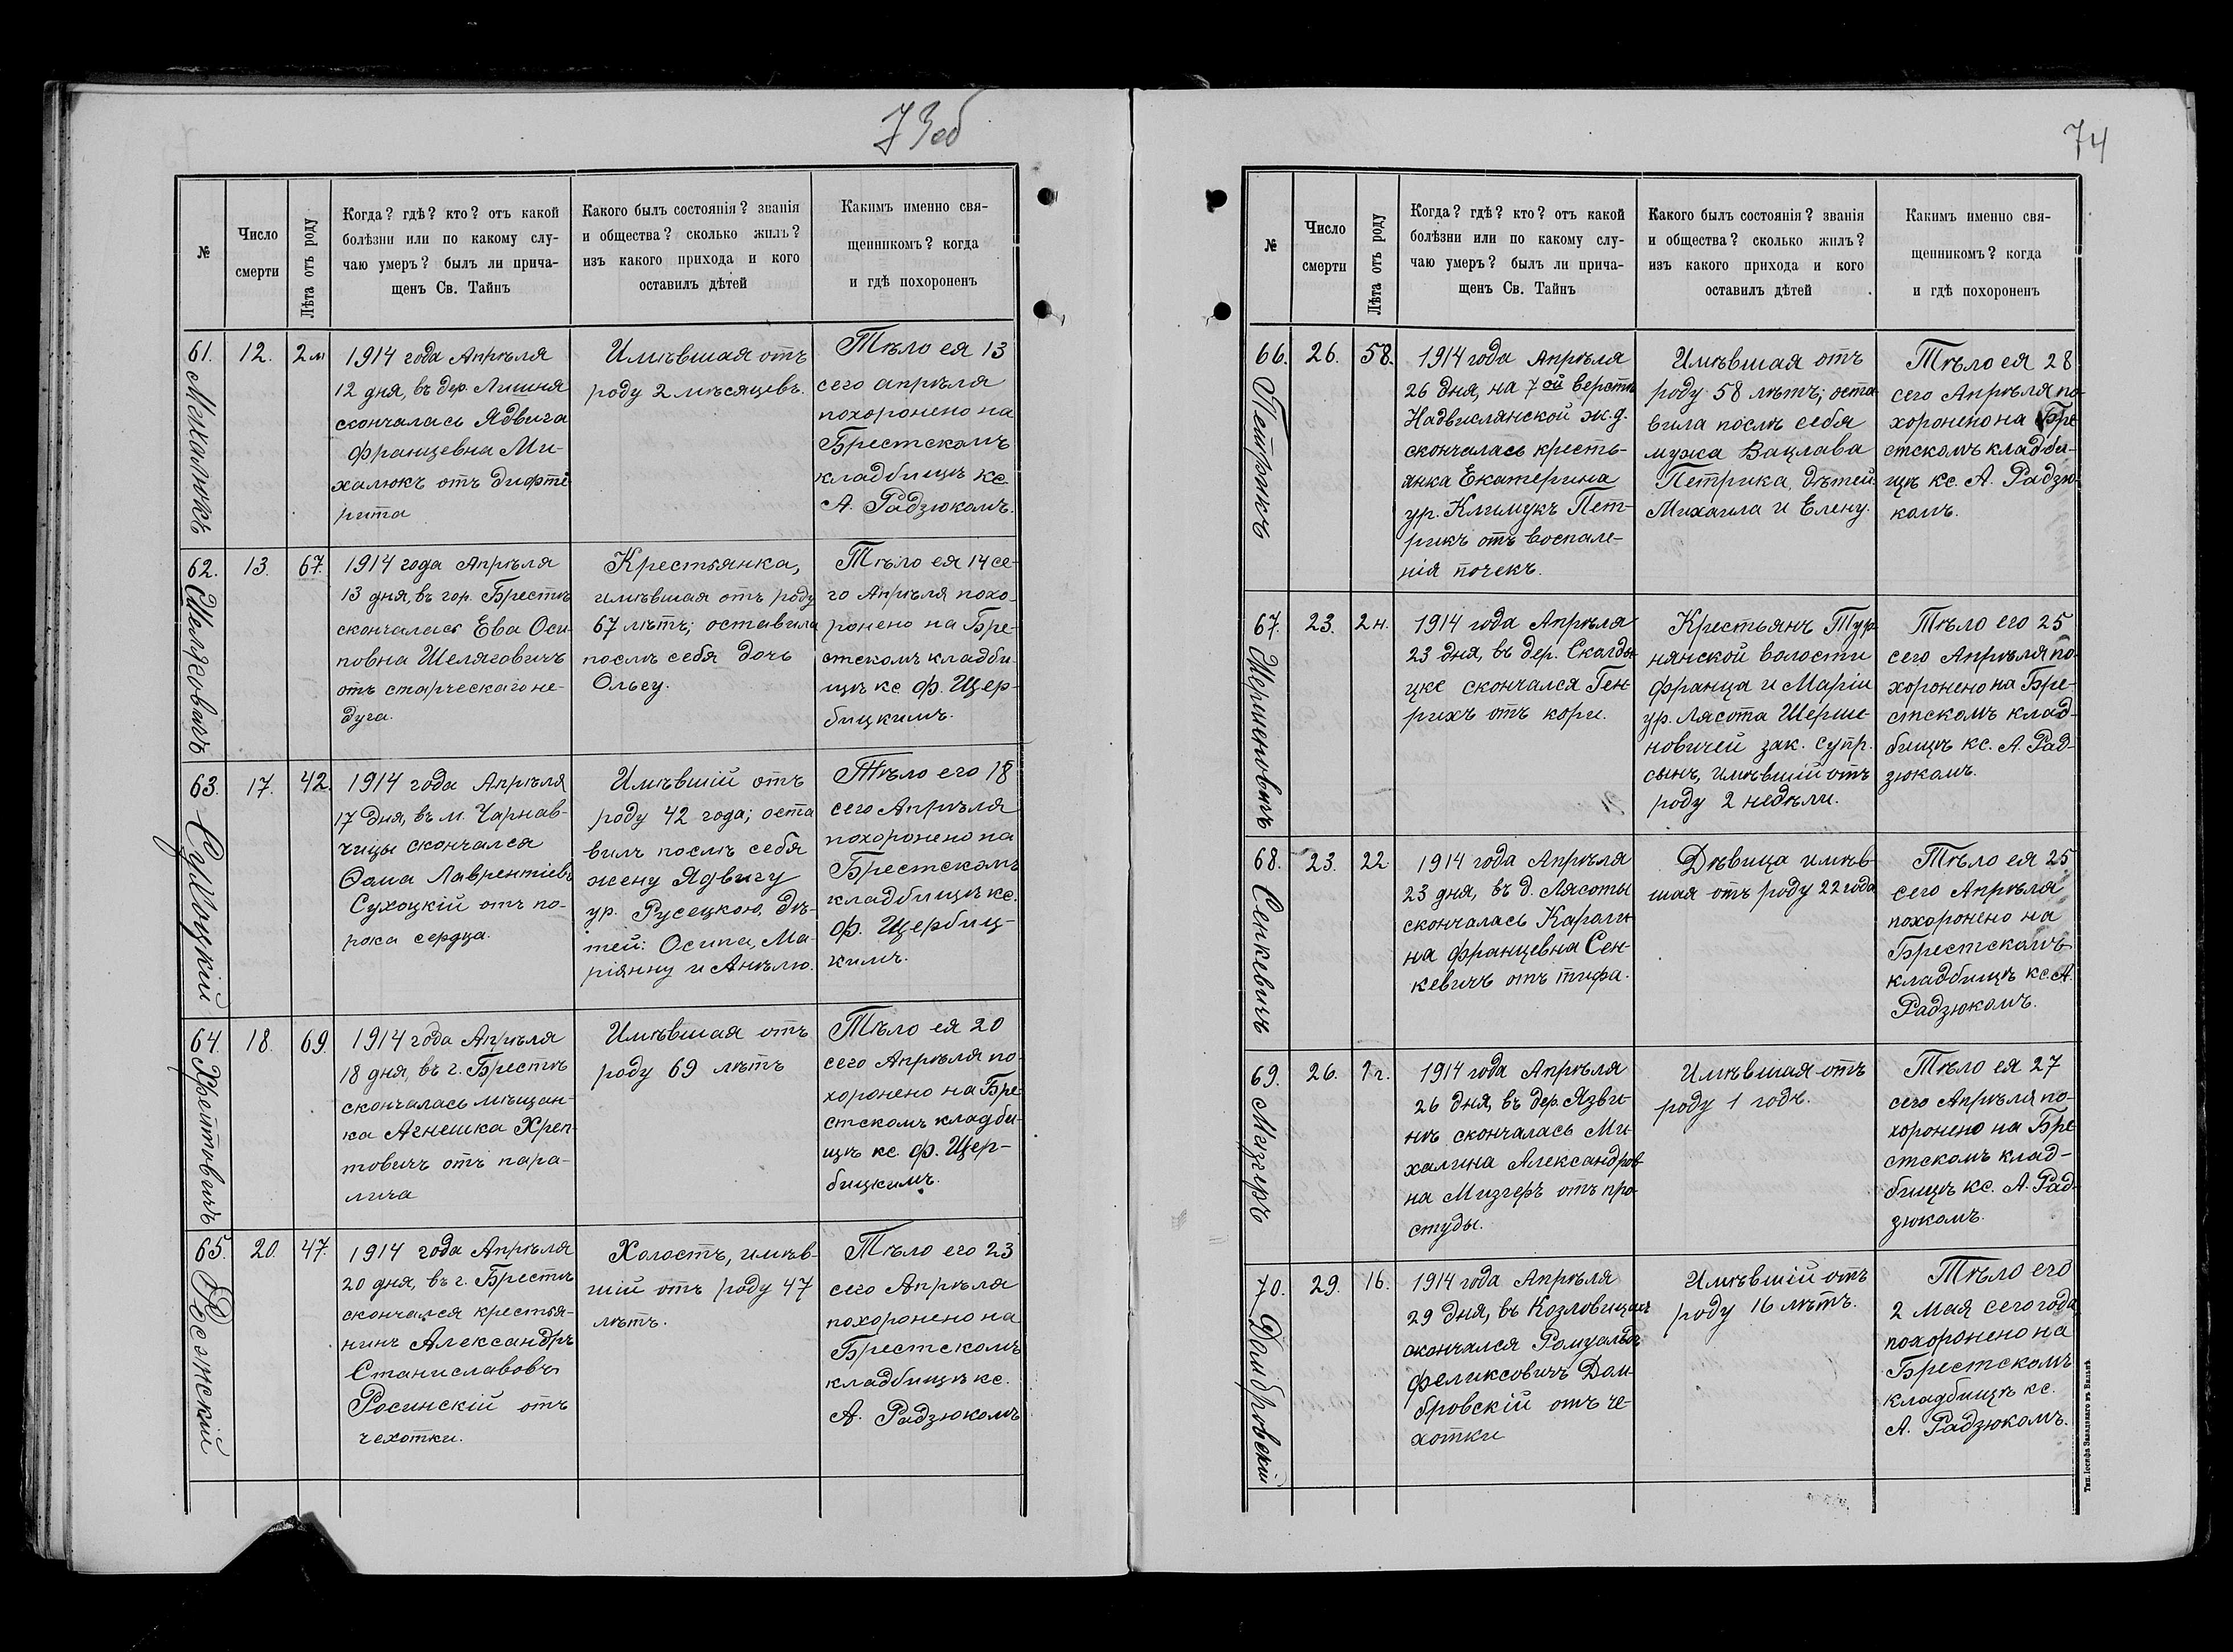 73об
№
Число
смерти
Лѣта отъ роду
Когда? гдѣ? кто? отъ какой
болѣзни или по какому слу-
чаю умеръ? былъ ли прича-
щенъ Св. Тайнъ
Какого былъ состоянія? званія
и общества? сколько жилъ?
изъ какого прихода и кого
оставилъ дѣтей
Какимъ именно свя-
щенникомъ? когда
и гдѣ похороненъ
61.
Михалюкъ
12.
2 м
1914 года Апрѣля
12 дня, въ дер. Лишня
скончалась Ядвига
Францевна Ми-
халюкъ отъ дифте
рита
Имѣвшая отъ
роду 2 мѣсяцевъ.
Тѣло ея 13
сего апрѣля
похоронено на
Брестскомъ
кладбищѣ кс
А. Радзюкомъ.
62.
Шеляговичъ
13.
67.
1914 года Апрѣля
13 дня, въ гор. Брестѣ
скончалась Ева Оси-
повна Шеляговичъ
отъ старческаго не-
дуга.
Крестьянка,
имѣвшая отъ роду
67 лѣтъ; оставила
послѣ себя дочь
Ольгу.
Тѣло ея 14 се-
го Апрѣля похо-
ронено на Бре-
стскомъ кладби-
щѣ кс. Ф. Щер-
бицкимъ.
63.
Сухоцкій
17.
42.
1914 года Апрѣля
17 дня, въ м. Чарнав-
чицы скончался
Ѳома Лаврентіевъ
Сухоцкій отъ по-
рока сердца.
Имѣвшій отъ
роду 42 года; оста
вилъ послѣ себя
жену Ядвигу
ур. Русецкою, дѣ-
тей: Осипа, Ма-
ріянну и Анѣлю.
Тѣло его 18
сего Апрѣля
похоронено на
Брестскомъ
кладбищѣ кс.
Ф. Щербиц-
кимъ.
64.
Хрептовичъ
18.
69.
1914 года Апрѣля
18 дня, въ г. Брестѣ
скончалась мѣщан-
ка Агнешка Хреп
товичъ отъ пара-
лича
Имѣвшая отъ
роду 69 лѣтъ
Тѣло ея 20
сего Апрѣля по-
хоронено на Бре-
стскомъ кладби-
щѣ кс. Ф. Щер-
бицкимъ.
65.
20.
47.
1914 года Апрѣля
20 дня, въ г. Брестѣ
скончался крестья-
нинъ Александръ
Станиславовъ
Росинскій отъ
чехотки.
Холостъ, имѣв-
шій отъ роду 47
лѣтъ.
Тѣло его 23
сего Апрѣля
похоронено на
Брестскомъ
кладбищѣ кс.
А. Радзюкомъ
74
№
Число
смерти
Лѣта отъ роду
Когда? гдѣ? кто? отъ какой
болѣзни или по какому слу-
чаю умеръ? былъ ли прича-
щенъ Св. Тайнъ
Какого былъ состоянія? званія
и общества? сколько жилъ?
изъ какого прихода и кого
оставилъ дѣтей
Какимъ именно свя-
щенникомъ? когда
и гдѣ похороненъ
66.
Петрикъ
26.
58.
1914 года Апрѣля
26 дня, на 7ой верстѣ
Надвислянской ж. д.
скончалась кресть-
янка Екатерина
ур. Климукъ Пет-
рикъ отъ воспале-
нія почекъ.
Имѣвшая отъ
роду 58 лѣтъ; оста
вила послѣ себя
мужа Вацлава
Петрика, дѣтей
Михаила и Елену.
Тѣло ея 28
сего Апрѣля по-
хоронено на Бре
стскомъ кладби-
щѣ кс. А. Радзю-
комъ.
67.
Шерменовичъ
23.
2 н.
1914 года Апрѣля
23 дня, въ дер.
скончался Ген-
рихъ отъ кори.
Крестьянъ Тур-
нянской волости
Франца и Маріи
ур. Лясота Шерме-
новичей зак. супр.
сынъ, имѣвшій отъ
роду 2 недѣли.
Тѣло его 25
сего Апрѣля по-
хоронено на Бре-
стскомъ клад-
бищѣ кс. А. Рад-
зюкомъ.
68.
Сенкевичъ
23.
22
1914 года Апрѣля
23 дня, въ д. Лясоты
скончалась Кароли-
на Францевна Сен-
кевичъ отъ тифа.
Дѣвица имѣв-
шая отъ роду 22 года
Тѣло ея 25
сего Апрѣля
похоронено на
Брестскомъ
кладбищѣ кс. А.
Радзюкомъ.
69.
Мизгеръ
26.
1 г.
1914 года Апрѣля
26 дня, въ дер. Язви-
нѣ скончалась Ми-
халина Александров
на Мизгеръ отъ про-
студы.
Имѣвшая отъ
роду 1 годъ.
Тѣло ея 27
сего Апрѣля по-
хоронено на Бре
стскомъ клад-
бищѣ кс. А. Рад-
зюкомъ.
70.
Домбровскій
29.
16.
1914 года Апрѣля
29 дня, въ Козловицахъ
скончался Ромуальдъ
Феликсовичъ Дом-
бровскій отъ че-
хотки
Имѣвшій отъ
роду 16 лѣтъ.
Тѣло его
2 Мая сего года
похоронено на
Брестскомъ
кладбищѣ кс.
А. Радзюкомъ.
Тип. Іосифа Завадзкаго въ Вильнѣ